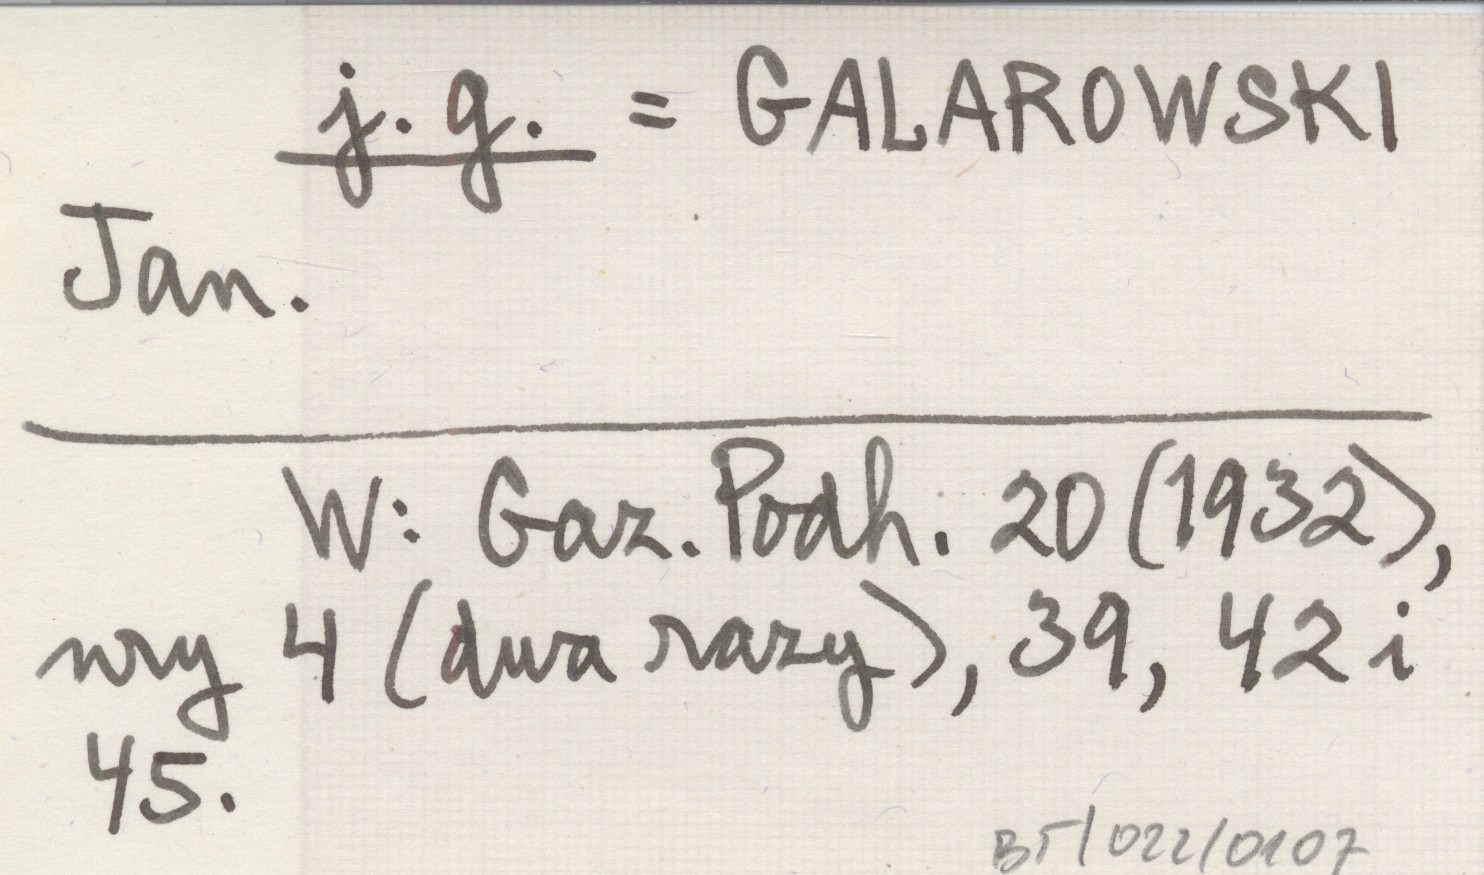 j. g. = GALAROWSKI
Jan.
W: Gaz. Podh. 20 (1932),
nry 4 (dwa razy), 39, 42 i
45.
BT/022/0107